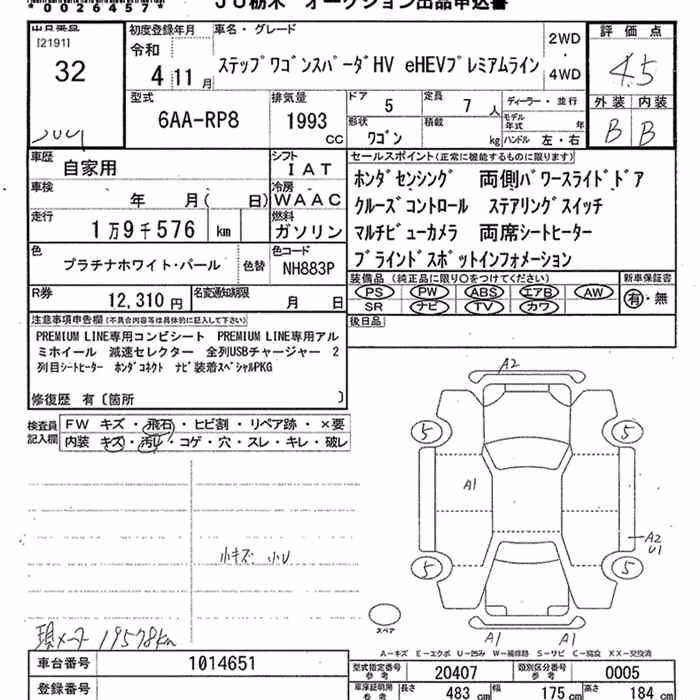 *0026457*
JU栃木 オークション出品申込書
出品番号
[2191]
32
初度登録年月
令和
4年11月
車名・グレード
ステップワゴンスパーダHV eHEVプレミアムライン
2WD
・
4WD
評価点
4.5
外装 内装
B B
型式
6AA-RP8
排気量
1993
cc
ドア
5
定員
7人
形状
ワゴン
積載
kg
ディーラー・並行
モデル年式 年
ハンドル 左・右
車歴
自家用
シフト
IAT
車検
年 月( 日)
冷房
WAAC
走行
1万9千576 km
燃料
ガソリン
色
プラチナホワイト・パール
色替
色コード
NH883P
R券
12,310円
名変通知期限
月 日
セールスポイント(正常に機能するものに限ります)
ホンダセンシング 両側パワースライドドア
クルーズコントロール ステアリングスイッチ
マルチビューカメラ 両席シートヒーター
ブラインドスポットインフォメーション
装備品(純正品に限り○をつけてください)
PS PW ABS エアB AW
SR ナビ TV カワ
新車保証書
有・無
後日品
注意事項申告欄(不具合内容等は具体的に記入して下さい)
PREMIUM LINE専用コンビシート PREMIUM LINE専用アル
ミホイール 減速セレクター 全列USBチャージャー 2
列目シートヒーター ホンダコネクト ナビ装着スペシャルPKG
修復歴 有〔箇所 〕
検査員
記入欄
FW キズ・飛石・ヒビ割・リペア跡・×要
内装 キズ・汚レ・コゲ・穴・スレ・キレ・破レ
小キズ 小U
現メーター 19578km
A2
5
5
A1
A2
U1
5
5
A1
A1
スペア
A-キズ E-エクボ U-凹み W-補修跡 S-サビ C-腐食 XX-交換済
車台番号
1014651
登録番号
型式指定番号
参考
20407
類別区分番号
参考
0005
車庫証明用
参考
長さ
483 cm
幅
175 cm
高さ
184 cm